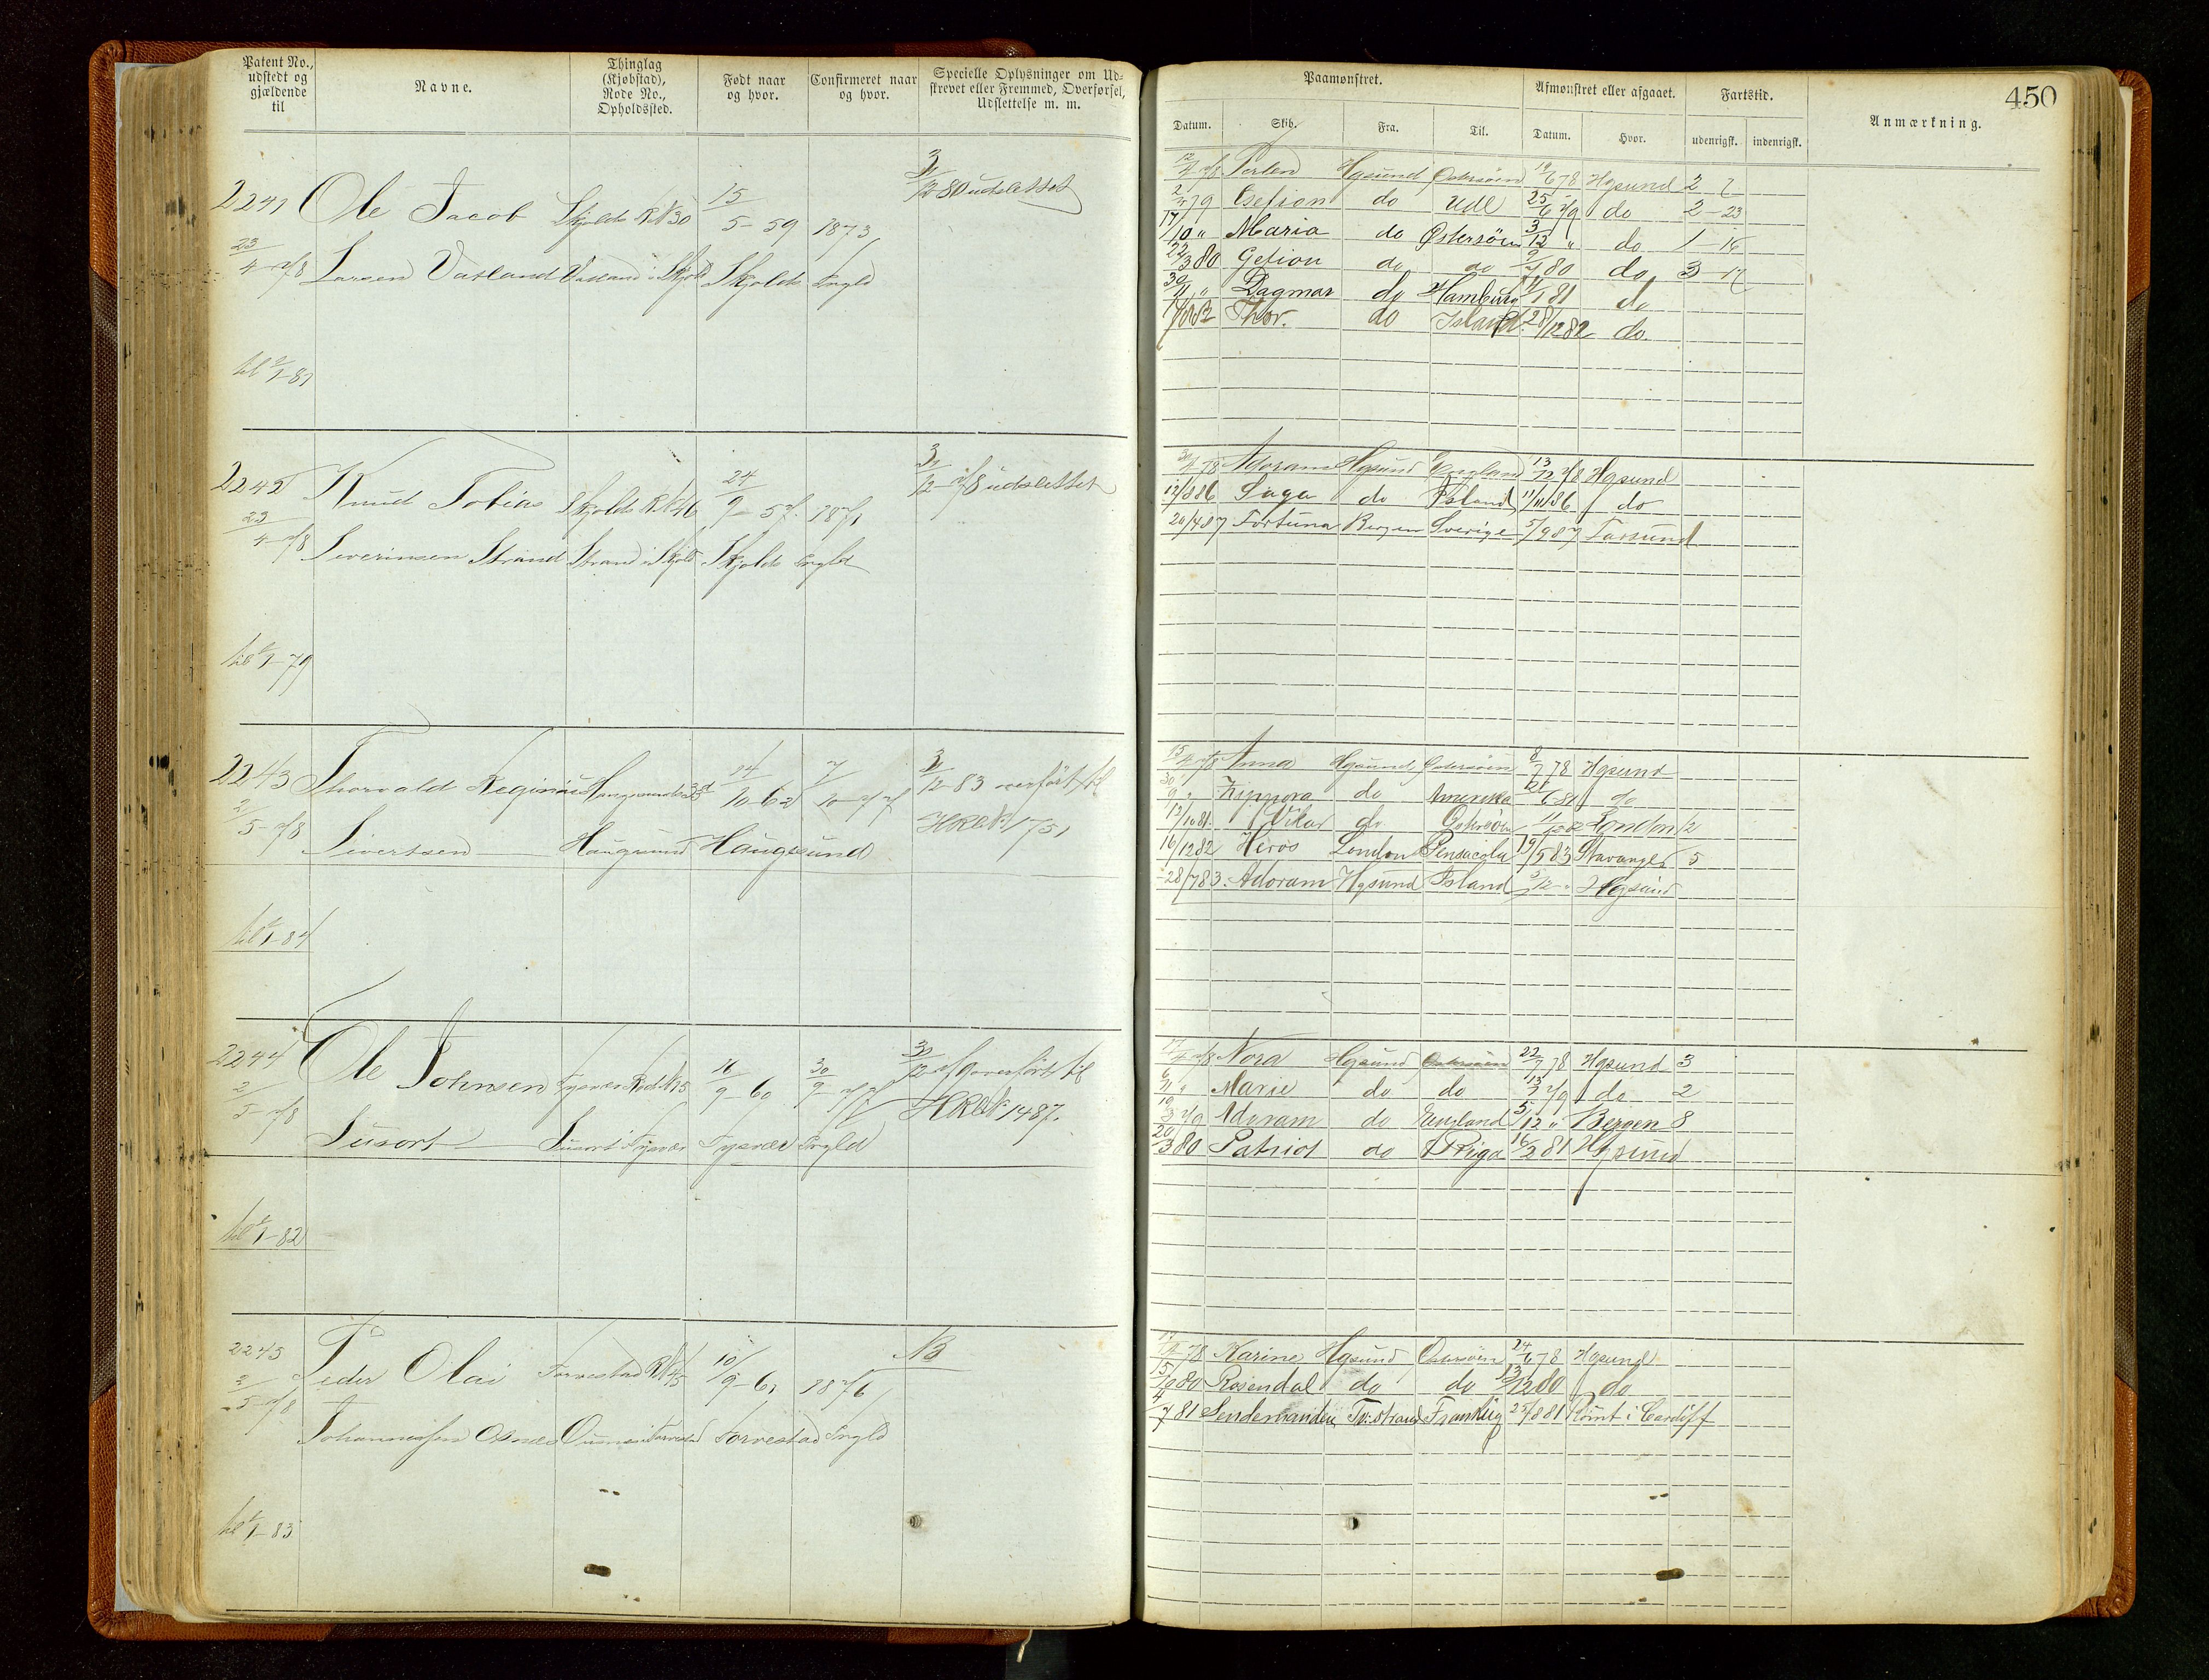 Patent No., udstedt og gjældende til
Navne.
Thinglag (Kjøbstad), Rode No., Opholdssted.
Født naar og hvor.
Confirmeret naar og hvor.
Specielle Oplysninger om Udskrevet eller Fremmed, Overførsel, Udslettelse m. m.
Paamønstret.
Afmønstret eller afgaaet.
Fartstid.
Anmærkning.
450
Datum. Skib. Fra. Til. Datum. Hvor. udenrigsk. indenrigsk.
2241 Ole Jacob Skjolds R№30 15/5-59 1873 31/12 80 udslettet
23/4-78 Larsen Vatland Vatland i Skjold Skjolds Prgld
til 1/1-81
12/4 78 Perlen Hgsund Østersøen 19/6 78 Hgsund 2 7
2/4 79 Gefion do Udl 25/6 79 do 2-23
17/10 " Maria do Østersøen 3/12 " do 1-16
22/3 80 Gefion do do 9/7 80 do 3-17
30/11 " Dagmar do Hamburg 11/1 81 do
Thor. do Island 28/12 82 do.
2242 Knud Tobias Skjolds R№46 24/9-57 1871 31/12 78 udslettet
23/4-78 Severinsen Strand Strand i Skjold Skjolds Prgld
til 1/1-79
30/4 78 Adoram Hgsund England 13/12 78 Hgsund
12/8 86 Saga do Island 11/11 86 do
20/4 87 Fortuna Bergen Sverige 5/9 87 Farsund
2243 Thorvald Reginius Haugesunds 14/10-62 7/10-77 31/12-83 overført til
2/5-78 Sivertsen Haugesund Haugesund HR№ 1751
til 1/1-84
15/4 78 Anna Hgsund Østersøen 8/7 78 Hgsund
30/9 " Zippora do Amerika 21/6 81 do
12/10 81. Vilar do Østersøen London 12
16/12 82 Heros London Pensacola 19/5 83 Stavanger 5
28/7 83. Adoram Hgsund Island 3/12 " Hgsund
2244 Ole Johnsen Tysvær Rd№15 16/9-60 30/9-77 31/12 79 overført til
2/5-78 Susort Susort i Tysvær Tysvær Prgld HR№ 1487.
til 1/1-82
17/4 78 Nora Hgsund Østersøen 22/7 78 Hgsund 3
6/11 " Marie do do 13/1 79 do 2
19/3 79 Adoram do England 5/12 " Bergen 8
20/3 80 Patriot do Riga 16/2 81 Hgsund
2245 Peder Olai Torvestad R№45 10/9-61 1876 NB
2/5-78 Johannessen Osnes Torvestad Prgld
til 1/1-83
17/4 78 Karine Hgsund Østersøen 24/6 78 Hgsund
15/9 80 Rosendal do do 13/12 80 do
4/7 81 Sendemanden Tv:strand 25/8 81 Rømt i Cardiff